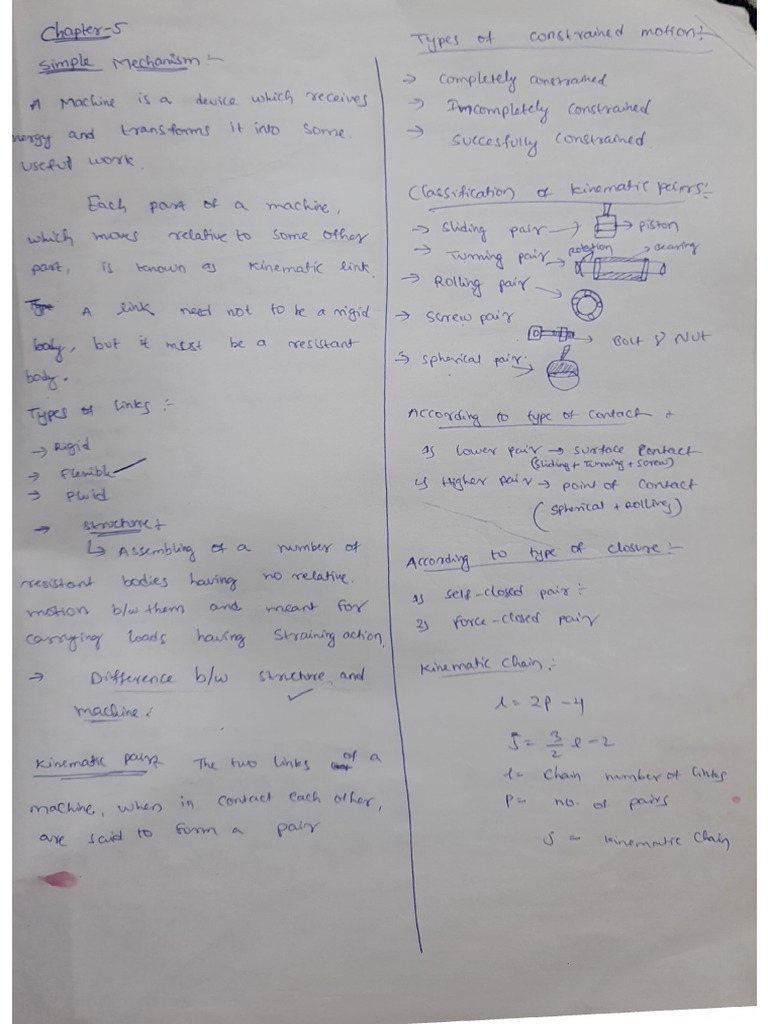 Chapter-5
Simple Mechanism :-
A Machine is a device which receives
energy and transforms it into some
useful work.
Each part of a machine,
which moves relative to some other
part, is known as kinematic link.
A link need not to be a rigid
body, but it must be a resistant
body.
Types of links :-
→ Rigid
→ Flexible
→ Fluid
→ Structure :-
↳ Assembling of a number of
resistant bodies having no relative
motion b/w them and meant for
carrying loads having straining action.
→ Difference b/w structure and
machine :
Kinematic pair :- The two links of a
machine, when in contact each other,
are said to form a pair
Types of constrained motion :-
→ Completely constrained
→ Incompletely constrained
→ Succesfully constrained.
Classification of kinematic peirs :-
→ Sliding pair → → piston
→ Turning pair rotation bearing
→ Rolling pair →
→ Screw pair
→ Bolt & Nut
→ Spherical pair →
According to type of contact :-
1) Lower pair → surface contact
(Sliding + Turning + screw)
2) Higher pair → point of contact
(Spherical + Rolling)
According to type of closure :-
1) Self-closed pair :-
2) Force-closed pair
Kinematic Chain :-
l = 2P - 4
J = 3/2 l - 2
l = Chain number of links
P = no. of pairs
J = kinematic Chain